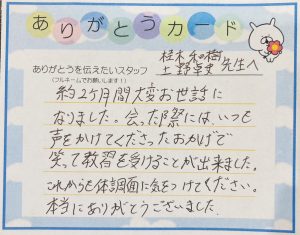 ありがとうカード
ありがとうを伝えたいスタッフ
(フルネームでお願いします!)
土野卓史 先生へ
約2ヶ月間大変お世話に
なりました。会った際には、いつも
声をかけてくださったおかげで
笑って教習を受けることが出来ました。
これからも体調面に気をつけてください。
本当にありがとうございました。